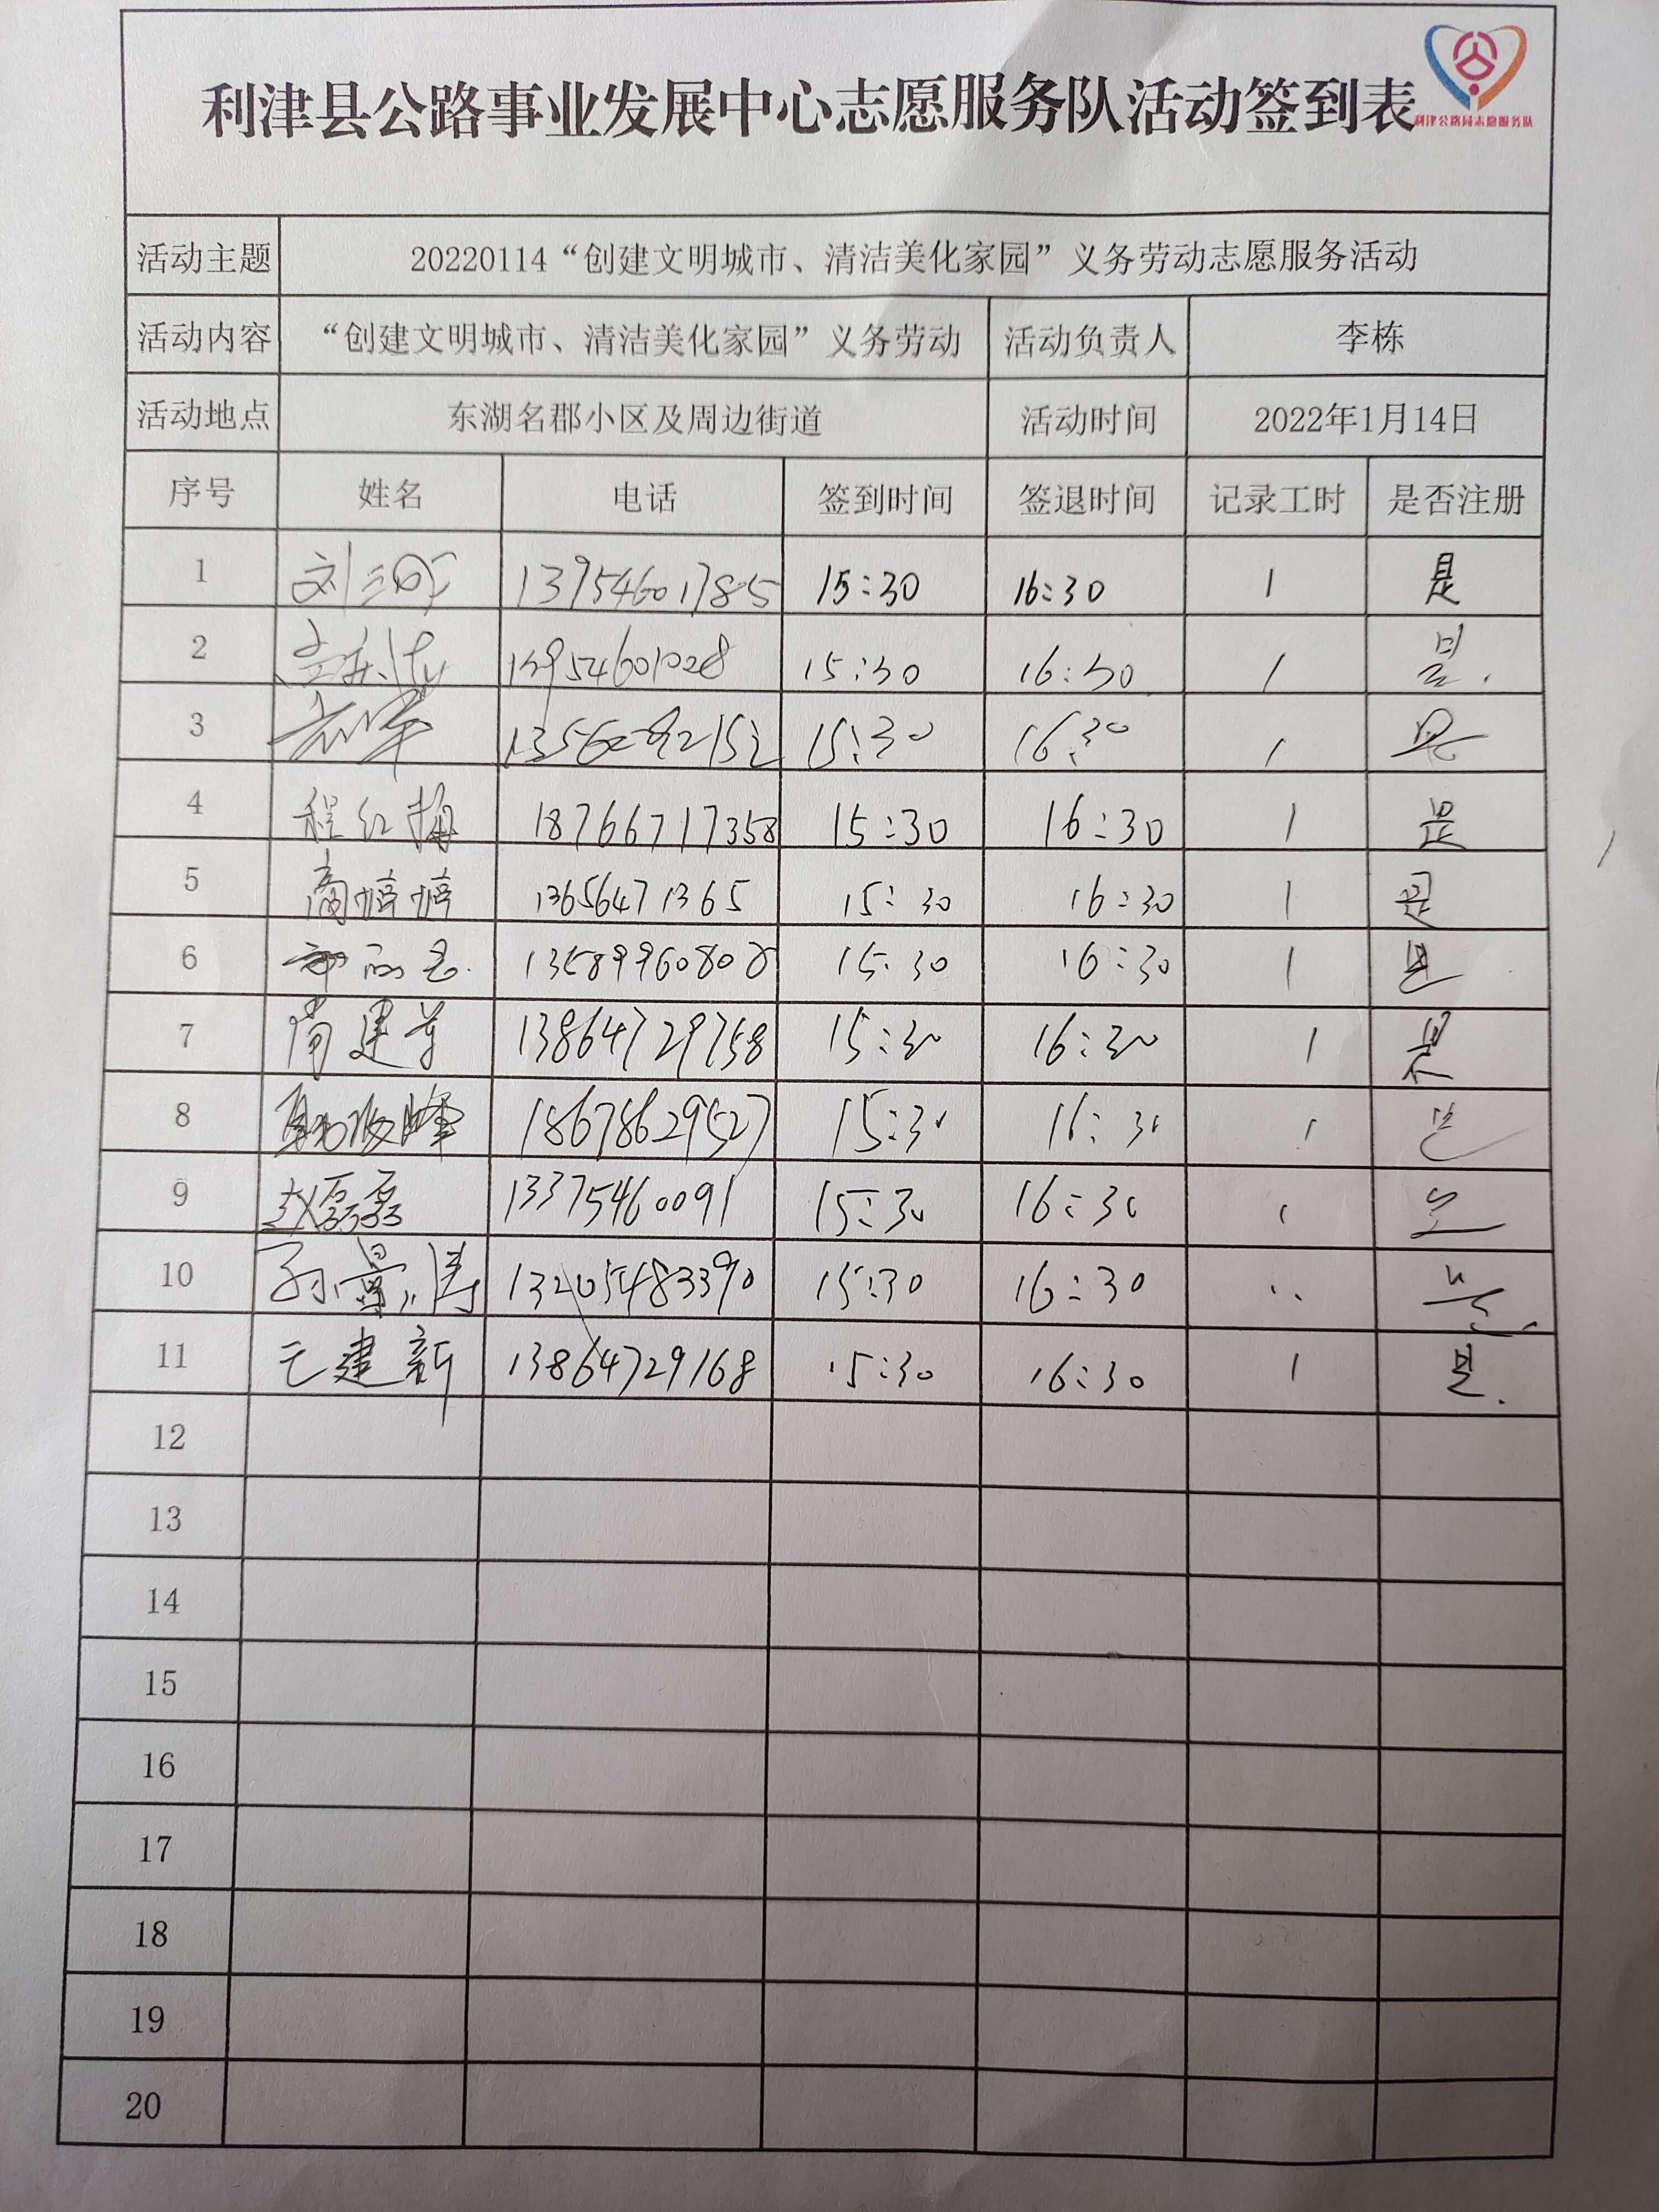 利津县公路事业发展中心志愿服务队活动签到表
利津公路局志愿服务队
活动主题 20220114“创建文明城市、清洁美化家园”义务劳动志愿服务活动
活动内容 “创建文明城市、清洁美化家园”义务劳动 活动负责人 李栋
活动地点 东湖名郡小区及周边街道 活动时间 2022年1月14日
序号 姓名 电话 签到时间 签退时间 记录工时 是否注册
1 13954601785 15:30 16:30 1 是
2 13954601028 15:30 16:30 1 是.
3 15:30 16:30 1 是
4 程红梅 18766717358 15:30 16:30 1 是
5 高婷婷 13656471365 15:30 16:30 1 是
6 13589960808 15:30 16:30 1 是
7 尚建芳 13864729758 15:30 16:30 1 是
8 18678629527 15:30 16:30 1 是
9 赵磊磊 13375460091 15:30 16:30 1 是
10 孙景涛 13205483390 15:30 16:30 是.
11 王建新 13864729168 15:30 16:30 1 是.
12
13
14
15
16
17
18
19
20